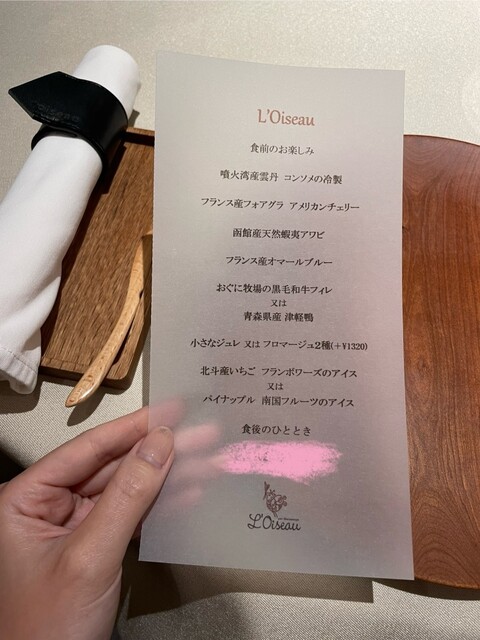 L'Oiseau
L'Oiseau
食前のお楽しみ
噴火湾産雲丹 コンソメの冷製
フランス産フォアグラ アメリカンチェリー
函館産天然蝦夷アワビ
フランス産オマールブルー
おぐに牧場の黒毛和牛フィレ
又は
青森県産 津軽鴨
小さなジュレ 又は フロマージュ2種(+¥1320)
北斗産いちご フランボワーズのアイス
又は
パイナップル 南国フルーツのアイス
食後のひととき
L'Oiseau